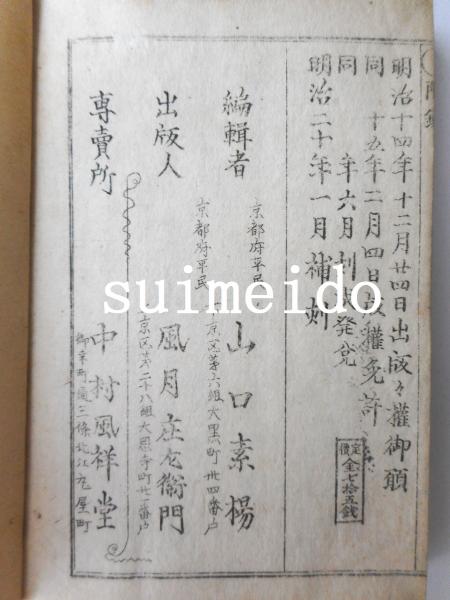 附錄
明治十四年十二月廿四日出版々權御願
同 十五年二月四日版權免許
同 年六月刻成発兌
明治二十年一月補刻
定價金七拾五銭
編輯者
京都府平民
山口素楊
京区第六組大黒町卅四番戸
出版人
京都府平民
風月庄左衛門
京区第二十八組大恩寺町廿一番戸
専賣所
中村風祥堂
御幸町通三條北江丸屋町
suimeido